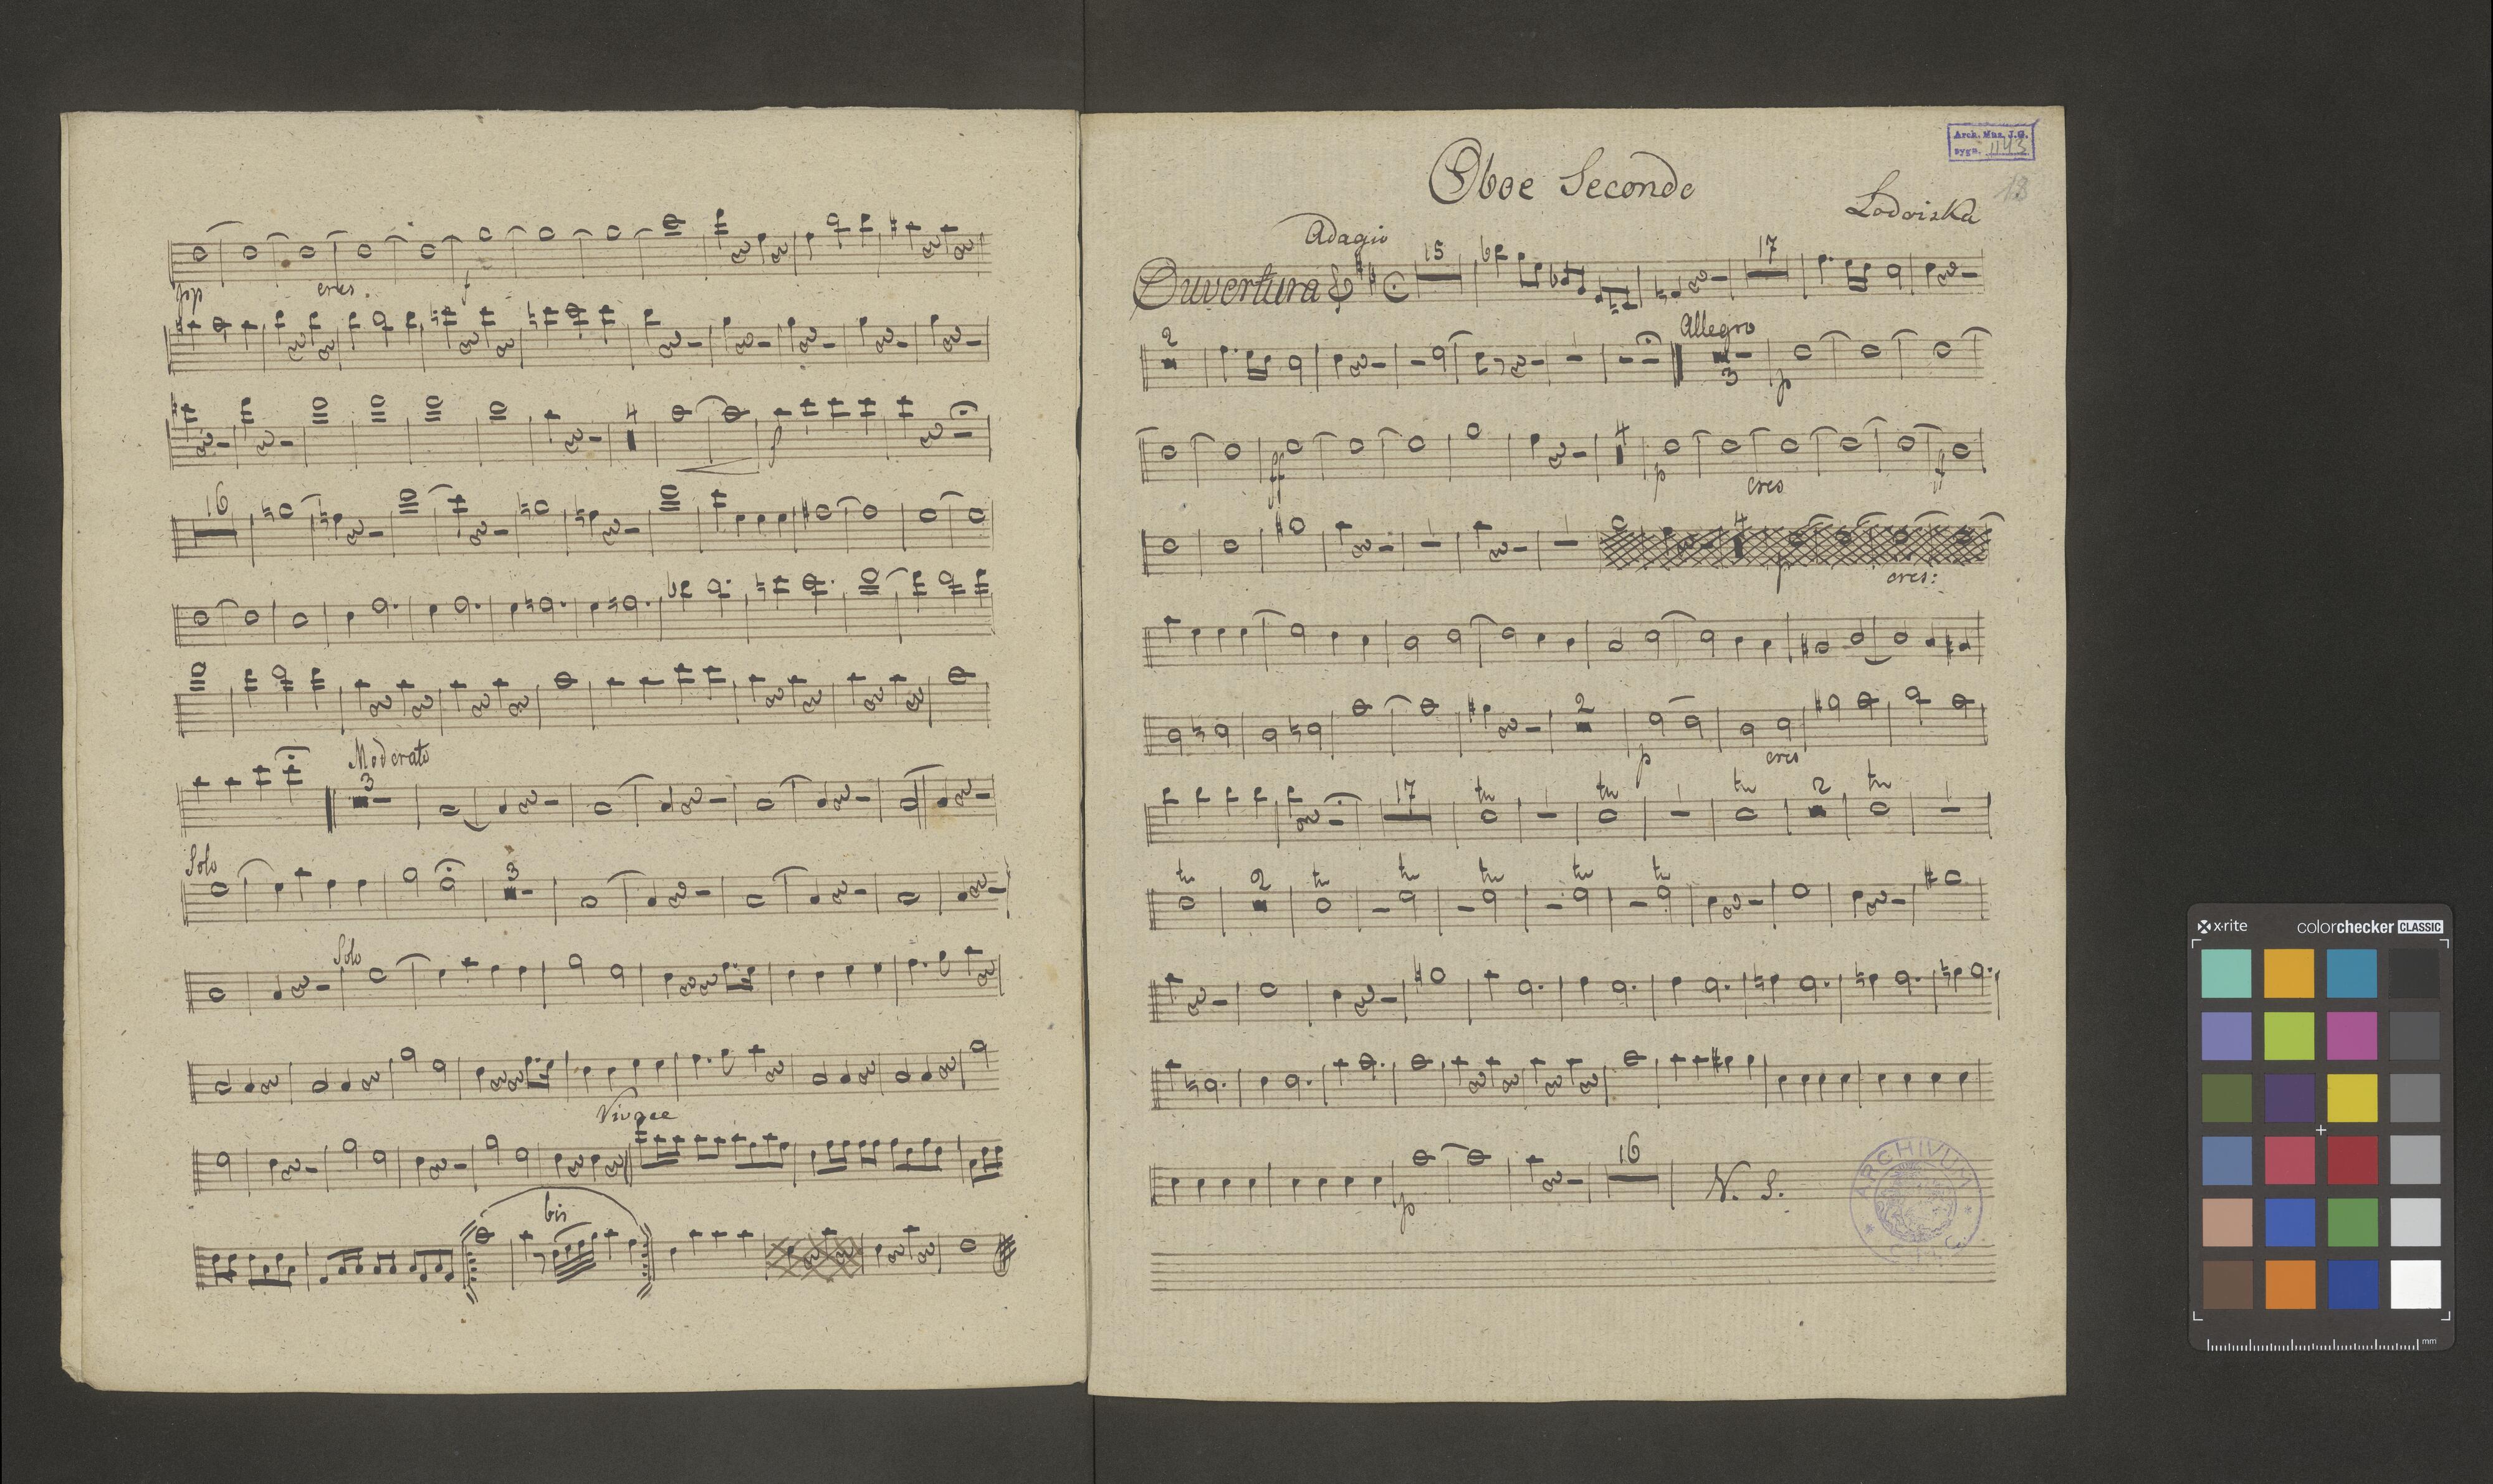 pp cres. f
4 f
16
Moderato
3
Solo
3
Solo
Vivace
bis
Arch. Muz. J.G.
sygn. 1143
18
Oboe Secondo
Lodoiska
Adagio
Ouvertura 15 17
2 Allegro 3 p
ff 4 p cres ff
4 p cres:
2 p cres
tr tr tr tr
17 2
tr tr tr tr tr tr
2
p 16 N. S.
ARCHIVUM
x-rite colorchecker CLASSIC
mm